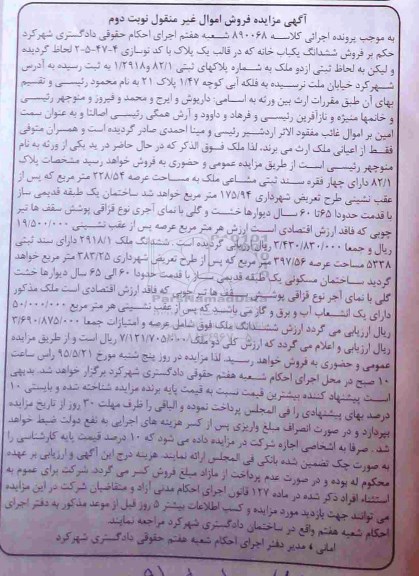 آگهی مزایده فروش اموال غیر منقول نوبت دوم
به موجب پرونده اجرائی کلاسه ۸۹۰۰۶۸ شعبه هفتم اجرای احکام حقوقی دادگستری شهرکرد
حکم بر فروش ششدانگ یکباب خانه که در قالب یک پلاک با کد نوسازی ۴-۵-۴۷-۲ لحاظ گردیده
و لیکن به لحاظ ثبتی ازدو ملک به شماره پلاکهای ثبتی ۸۲/۱ و ۲۹۱۸/۱ به ثبت رسیده به آدرس
شهرکرد خیابان ملت نرسیده به فلکه آبی کوچه ۱/۴۷ پلاک ۲۱ به نام محمود رئیسی و تقسیم
بهای آن طبق مقررات ارث بین ورثه به اسامی: داریوش و ایرج و محمد و فیروز و منوچهر رئیسی
و خانمها منیژه و نازآفرین رئیسی و فرهاد و داوود و آرش همگی رئیسی اصالتا و به عنوان سمت
امین بر اموال غائب مفقود الاثر اردشیر رئیسی و مینا احمدی صادر گردیده است و همسران متوفی
فقط از اعیانی ملک ارث می برند، لذا ملک فوق الذکر که در حال حاضر در ید یکی از ورثه به نام
منوچهر رئیسی است از طریق مزایده عمومی و حضوری به فروش خواهد رسید مشخصات پلاک
۸۲/۱ دارای چهار فقره سند ثبتی مشاعی ملک به مساحت عرصه ۲۲۸/۵۴ متر مربع که پس از
عقب نشینی طرح تعریض شهرداری ۱۷۵/۹۴ متر مربع خواهد شد ساختمان یک طبقه قدیمی ساز
با قدمت حدودا ۶۵تا ۶۰ سال دیوارها خشت و گلی با نمای آجری نوع قزاقی پوشش سقف ها تیر
چوبی که فاقد ارزش اقتصادی است ارزش هر متر مربع عرصه پس از عقب نشینی ۱۹/۵۰۰/۰۰۰
ریال و جمعا ۳/۴۳۰/۸۳۰/۰۰۰ ریال ارزیابی گردیده است. ششدانگ ملک ۲۹۱۸/۱ دارای سند ثبتی
۵۳۳۸ مساحت عرصه ۳۹۷/۵۶ متر مربع که پس از طرح تعریض شهرداری ۳۸۳/۲۵ متر مربع خواهد
گردید ساختمان مسکونی یک طبقه قدیمی ساز با قدمت حدودا ۶۰ الی ۶۵ سال دیوارها خشت
گلی با نمای آجر نوع قزاقی پوشش سقف ها تیر چوبی که فاقد ارزش اقتصادی است ملک مذکور
دارای یک انشعاب آب و برق و گاز می باشد که پس از عقب نشینی هر متر مربع ۵۰/۰۰۰/۰۰۰
ریال ارزیابی می گردد ارزش ششدانگ ملک فوق شامل عرصه و امتیازات جمعا ۳/۶۹۰/۸۷۵/۰۰۰
ریال ارزیابی و اعلام می گردد که ارزش کلی دو ملک ۷/۱۲۱/۷۰۵/۰۰۰ ریال است و از طریق مزایده
عمومی و حضوری به فروش خواهد رسید، لذا مزایده در روز پنج شنبه مورخ ۹۵/۵/۲۱ راس ساعت
۱۰ صبح در محل اجرای احکام شعبه هفتم حقوقی دادگستری شهرکرد برگزار خواهد شد. بدیهی
است پیشنهاد کننده بیشترین قیمت نسبت به قیمت پایه برنده مزایده شناخته شده و بایستی ۱۰
درصد بهای پیشنهادی را فی المجلس پرداخت نموده و الباقی را ظرف مهلت ۳۰ روز از تاریخ مزایده
بپردازد و در صورت انصراف مبلغ واریزی پس از کسر هزینه های اجرایی به نفع دولت ضبط خواهد
شد. صرفا به اشخاصی اجازه شرکت در مزایده داده می شود که ۱۰ درصد قیمت پایه کارشناسی را
به صورت چک تضمین شده بانکی فی المجلس ارائه نمایند. هزینه درج این آگهی و ارزیابی بر عهده
محکوم له بوده و در صورت عدم پرداخت از مازاد مبلغ فروش کسر می گردد. شرکت برای عموم به
استثناء افراد ذکر شده در ماده ۱۲۷ قانون اجرای احکام مدنی آزاد و متقاضیان شرکت در این مزایده
می توانند جهت بازدید مورد مزایده و کسب اطلاعات بیشتر ۵ روز قبل از موعد مذکور به دفتر اجرای
احکام شعبه هفتم واقع در ساختمان دادگستری شهرکرد مراجعه نمایند.
امانی ، مدیر دفتر اجرای احکام شعبه هفتم حقوقی دادگستری شهرکرد